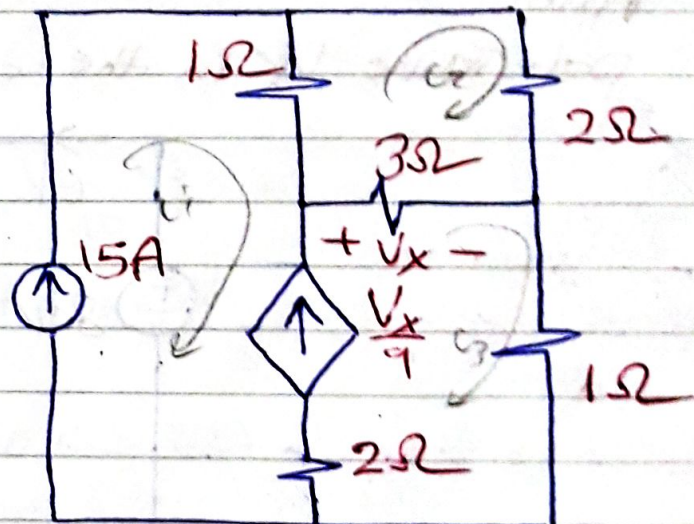 1Ω
i2
2Ω
3Ω
i1
15A
+ Vx -
Vx/9
i3
1Ω
2Ω